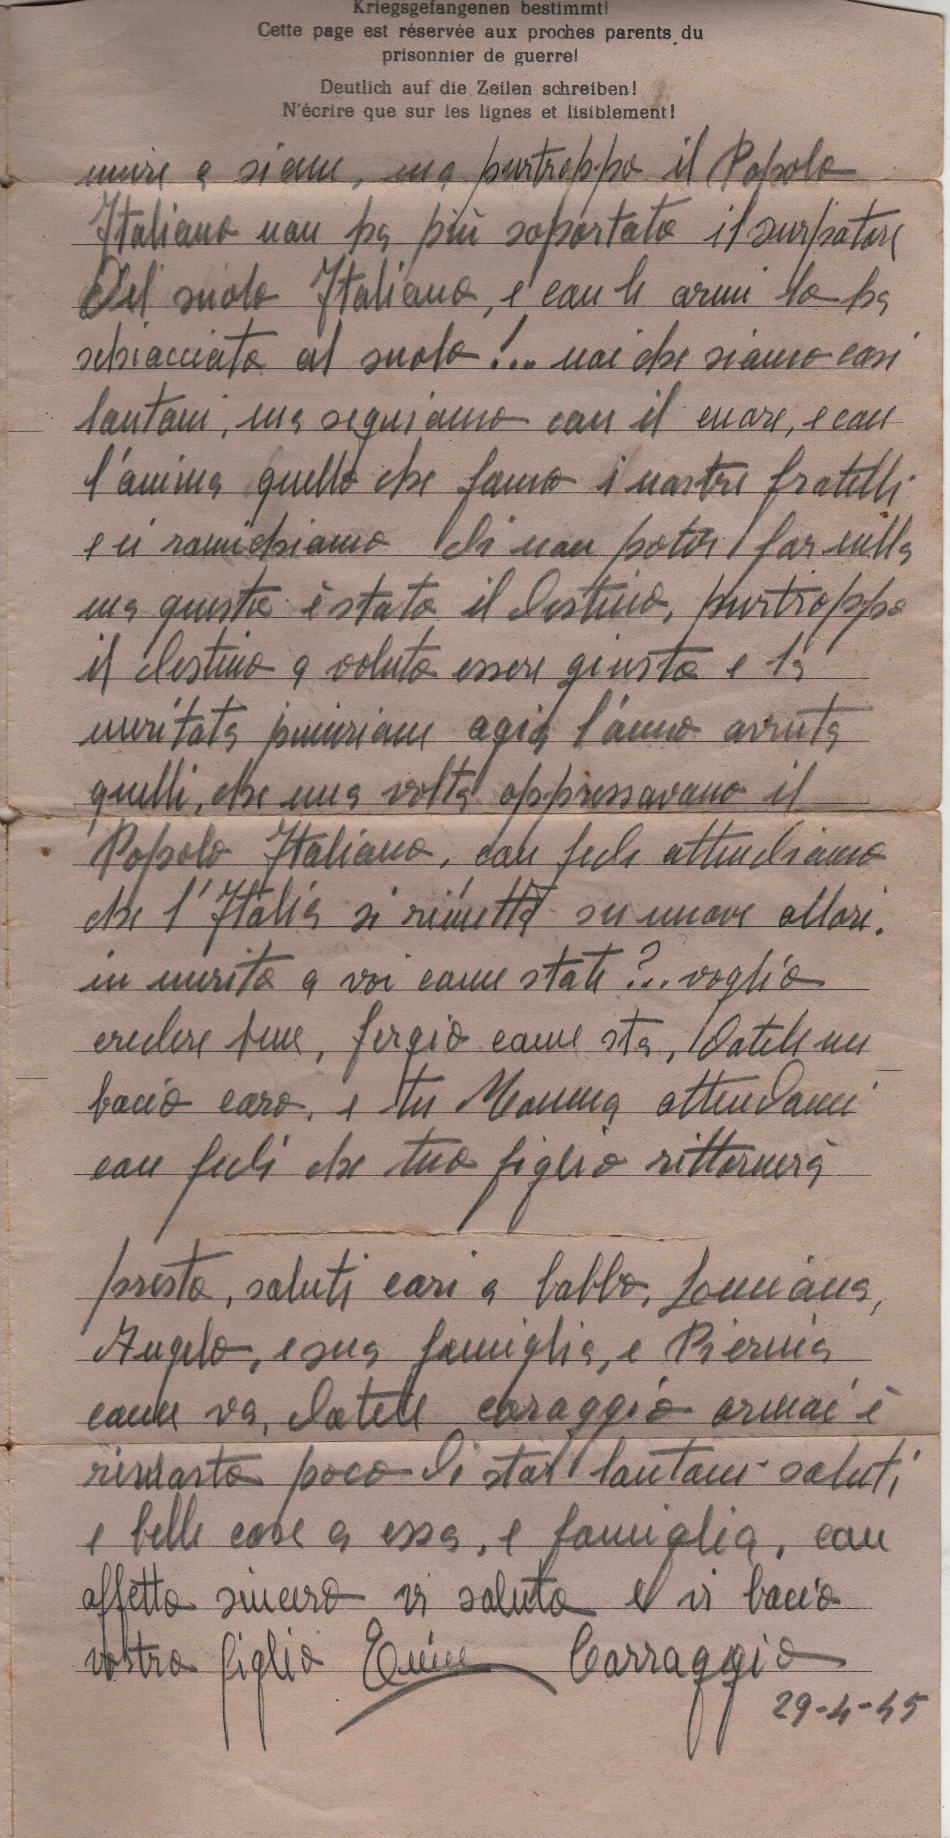 Kriegsgefangenen bestimmt!
Cette page est réservée aux proches parents du
prisonnier de guerre!
Deutlich auf die Zeilen schreiben!
N'écrire que sur les lignes et lisiblement!
a siam, ma purtroppo il Popolo
Italiano non ha più soportato il surpatore
Del suolo Italiano, e con le armi lo ha
schiacciato al suolo!... noi che siamo così
lontani, ma seguiamo con il cuore, e con
l'anima quello che fanno i nostri fratelli
e ci ramichiamo di non poter far nulla
ma questo è stato il Destino, purtroppo
il destino a voluto essere giusto e la
meritata agia l'anno avuta
quelli, che una volta oppressavano il
Popolo Italiano, con fede attendiamo
che l'Italia si rimetta su nuove allori.
in merito a voi come state?... voglio
credere bene, Sergio come sta, Datele un
bacio caro, e tu Mamma attendami
con fede che tuo figlio rittornerà
presto, saluti cari a babbo, Luciana,
Angelo, e sua famiglia, e Pierina
come va, Datele coraggio ormai è
rimasto poco di star lontani saluti
e belle cose a essa, e famiglia, con
affetto sincero vi saluto e vi bacio
vostro figlio Carraggio
29-4-45